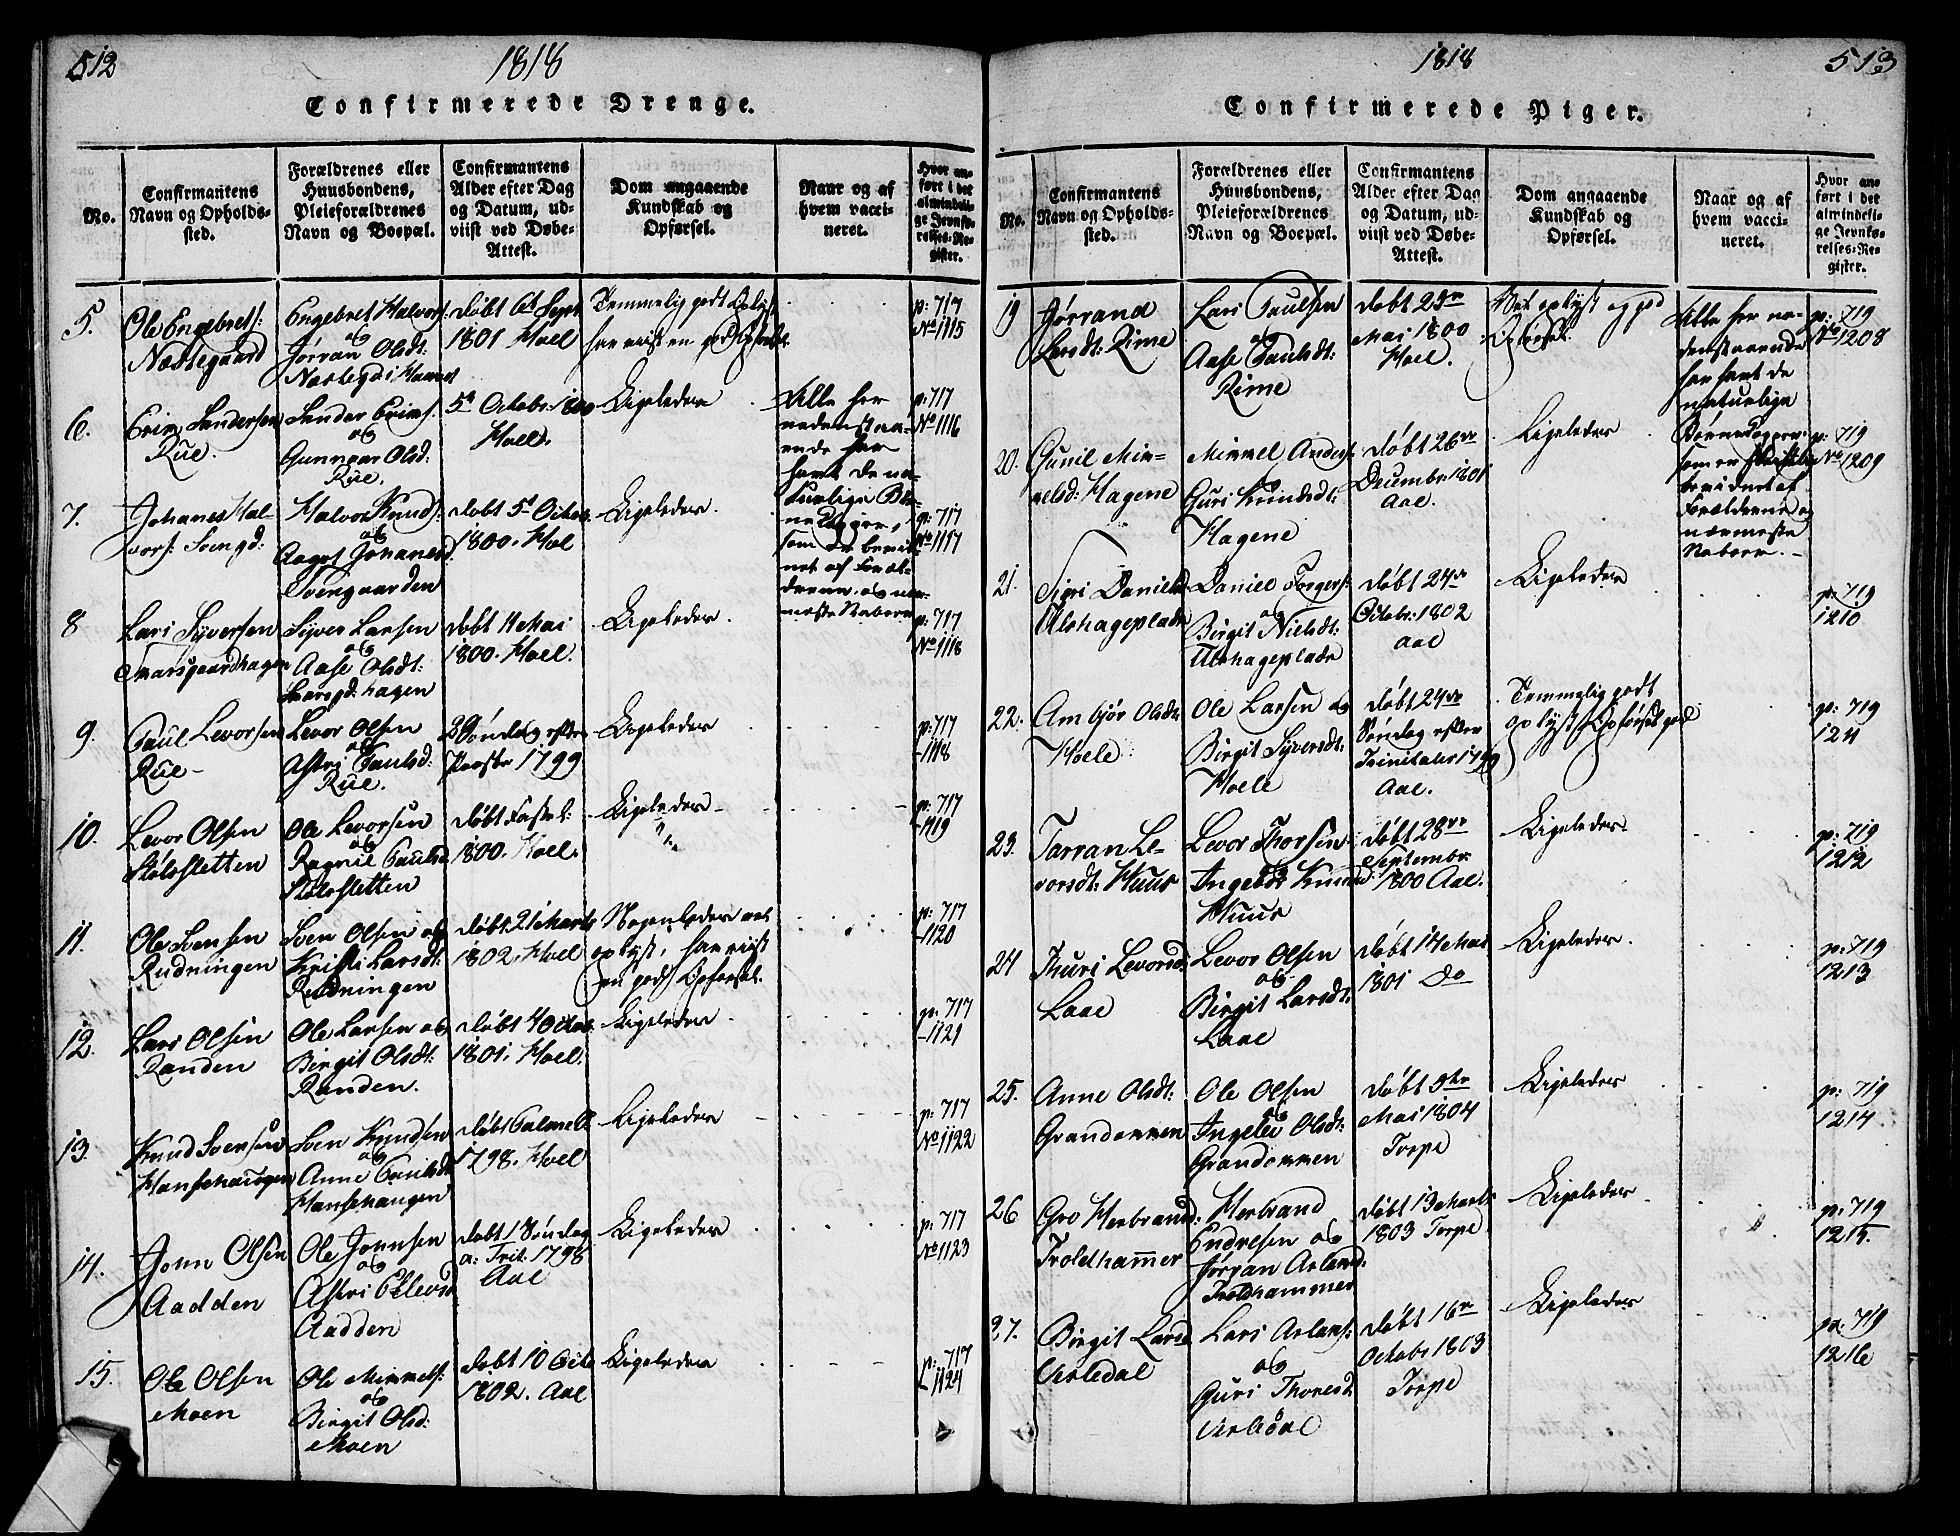 512
1818
Confirmerede Drenge.
No.
Confirmantens
Navn og Opholds-
sted.
Forældrenes eller
Huusbondens,
Pleieforældrenes
Navn og Boepæl.
Confirmantens
Alder efter Dag
og Datum, ud-
viist ved Døbe-
Attest.
Dom angaaende
Kundskab og
Opførsel.
Naar og af
hvem vacci-
neret.
Hvor an-
ført i det
almindeli-
ge Jevnfø-
relses-Re-
gister.
5.
Ole Engebrets:
Næstegaard
Engebret Halvors:
og
Jørran Olsdt:
Næstegd i Hemsed
Døbt 6t Sept
1801 Hoel
Temmelig godt Oplyst
har viist en god Opførsel.
p: 717
No 1115
6.
Erim Sandersen
Rue.
Sander Erims:
og
Gunnaar Olsd:
Rue.
5t Octobr. 1800
Hoel.
Ligeledes
Alle her
nedenstaa-
ende har
havt de na-
turlige Bør-
ne Kopper,
som er bevid-
net af Foræl-
drene og nær-
meste Naboer
p: 717
No 1116
7.
Johanes Hal-
vors: Svengd:
Halvor Knuds:
og
Aagot Johanesd:
Svengaarden
Døbt 5t Octob.
1800. Hoel
Ligeledes.
p: 717
No 1117
8
Lars Syversen
Snarsgaardhagen
Syver Larsen
og
Aase Olsdt:
Snarsgd: hagen
Døbt 11 Mai
1800. Hoel.
Ligeledes.
p: 717
No 1118
9.
Paul Levorsen
Rue
Levor Olsen
og
Astri Paulsd:
Rue.
2 Søndag efter
Paaske 1799
Ligeledes
p: 717
-1118
10.
Levor Olsen
Stølesletten
Ole Levorsen
og
Ragnil Paulsd
Stølesletten
Døbt Fastel:
1800. Hoel.
Ligeledes
p: 717
-1119
11.
Ole Svensen
Rudningen
Sven Olsen og
Kristi Larsdt:
Rudningen
Døbt 21 Marts
1802. Hoel
Nogenledes vel
oplyst, har viist
en god Opførsel.
p: 717
-1120
12.
Lars Olsen
Randen
Ole Larsen og
Birgit Olsdt:
Randen.
Døbt 4 Octob.
1801. Hoel.
Ligeledes
p: 717
-1121
13.
Knud Svensen
Hansehaugen
Sven Knudsen
og
Anne Paulsdt
Hansehaugen
Døbt Palmeli
1798. Hoel
Ligeledes
p: 717
No 1122
14.
John Olsen
Aadden
Ole Johnsen
og
Astri Ellevsd
Aadden
Døbt 1 Søndag
a: Trit. 1798
Aal
Ligeledes
p: 717
No 1123
15.
Ole Olsen
Moen
Ole Mimmels:
og
Birgit Olsd:
Moen
Døbt 10 Octo
1802. Aal
Ligeledes
p: 717
1124
1818
513
Confirmerede Piger.
No.
Confirmantens
Navn og Opholds-
sted.
Forældrenes eller
Huusbondens,
Pleieforældrenes
Navn og Boepæl.
Confirmantens
Alder efter Dag
og Datum, ud-
viist ved Døbe-
Attest.
Dom angaaende
Kundskab og
Opførsel.
Naar og af
hvem vacci-
neret.
Hvor an-
ført i det
almindeli-
ge Jevnfø-
relses-Re-
gister.
19
Jørrand
Larsdt: Rime
Lars Paulsen
og
Aase Paulsdt:
Rime
Døbt 23de
Mai 1800
Hoel.
Vel oplyst og god
Opførsel.
Alle her ne-
denstaaende
har havt de
naturlige
Børne Kopper
som er skriftlig
bevidnet af
Forældrene og
nærmeste
Naboer.
p: 719
No 1208
20.
Gunil Mim-
melsd: Hagene
Mimmel Anders:
Guri Knudsdt:
Hagene
Døbt 26de
Decembr. 1801
Aal.
Ligeledes
p: 719
No 1209
21.
Sigri Danielsd
Ulshageplads
Daniel Torgers:
og
Birgit Nielsdt:
Ulshageplads
Døbt 24de
Octobr. 1802
Aal
Ligeledes
p: 719
1210
22.
Ambjør Olsdt
Hoele
Ole Larsen og
Birgit Syversdt:
Hoele
Døbt 24de
Søndag efter
Trinitatis 1799
Aal.
Temmelig godt
oplyst Opførsel god
p: 719
1211
23.
Tarran Le-
vorsdt: Huus
Levor Thorsen
Ingebor Knudsd:
Huus
Døbt 28de
Septembr.
1800 Aal.
Ligeledes
p: 719
1212
24
Thuri Levorsd:
Laae
Levor Olsen
og
Birgit Larsdt:
Laae
Døbt 14 Mai
1801 Do
Ligeledes.
p: 719
1213
25.
Anne Olsdt:
Grandommen
Ole Olsen
og
Ingelev Olsdt:
Grandommen
Døbt 3die
Mai 1804
Torpe
Ligeledes
p: 719
1214
26
Gro Herbrandsd:
Troldhammer
Herbrand
Endresen og
Jørgan Arlansd:
Troldhammer
Døbt 13 Marts
1803 Torpe
Ligeledes
p: 719
1215.
27.
Birgit Larsd
Verledal
Lars Arlans:
og
Guri Thoresd
Verledal
Døbt 16de
Octobr. 1803
Torpe
Ligeledes
p: 719
1216